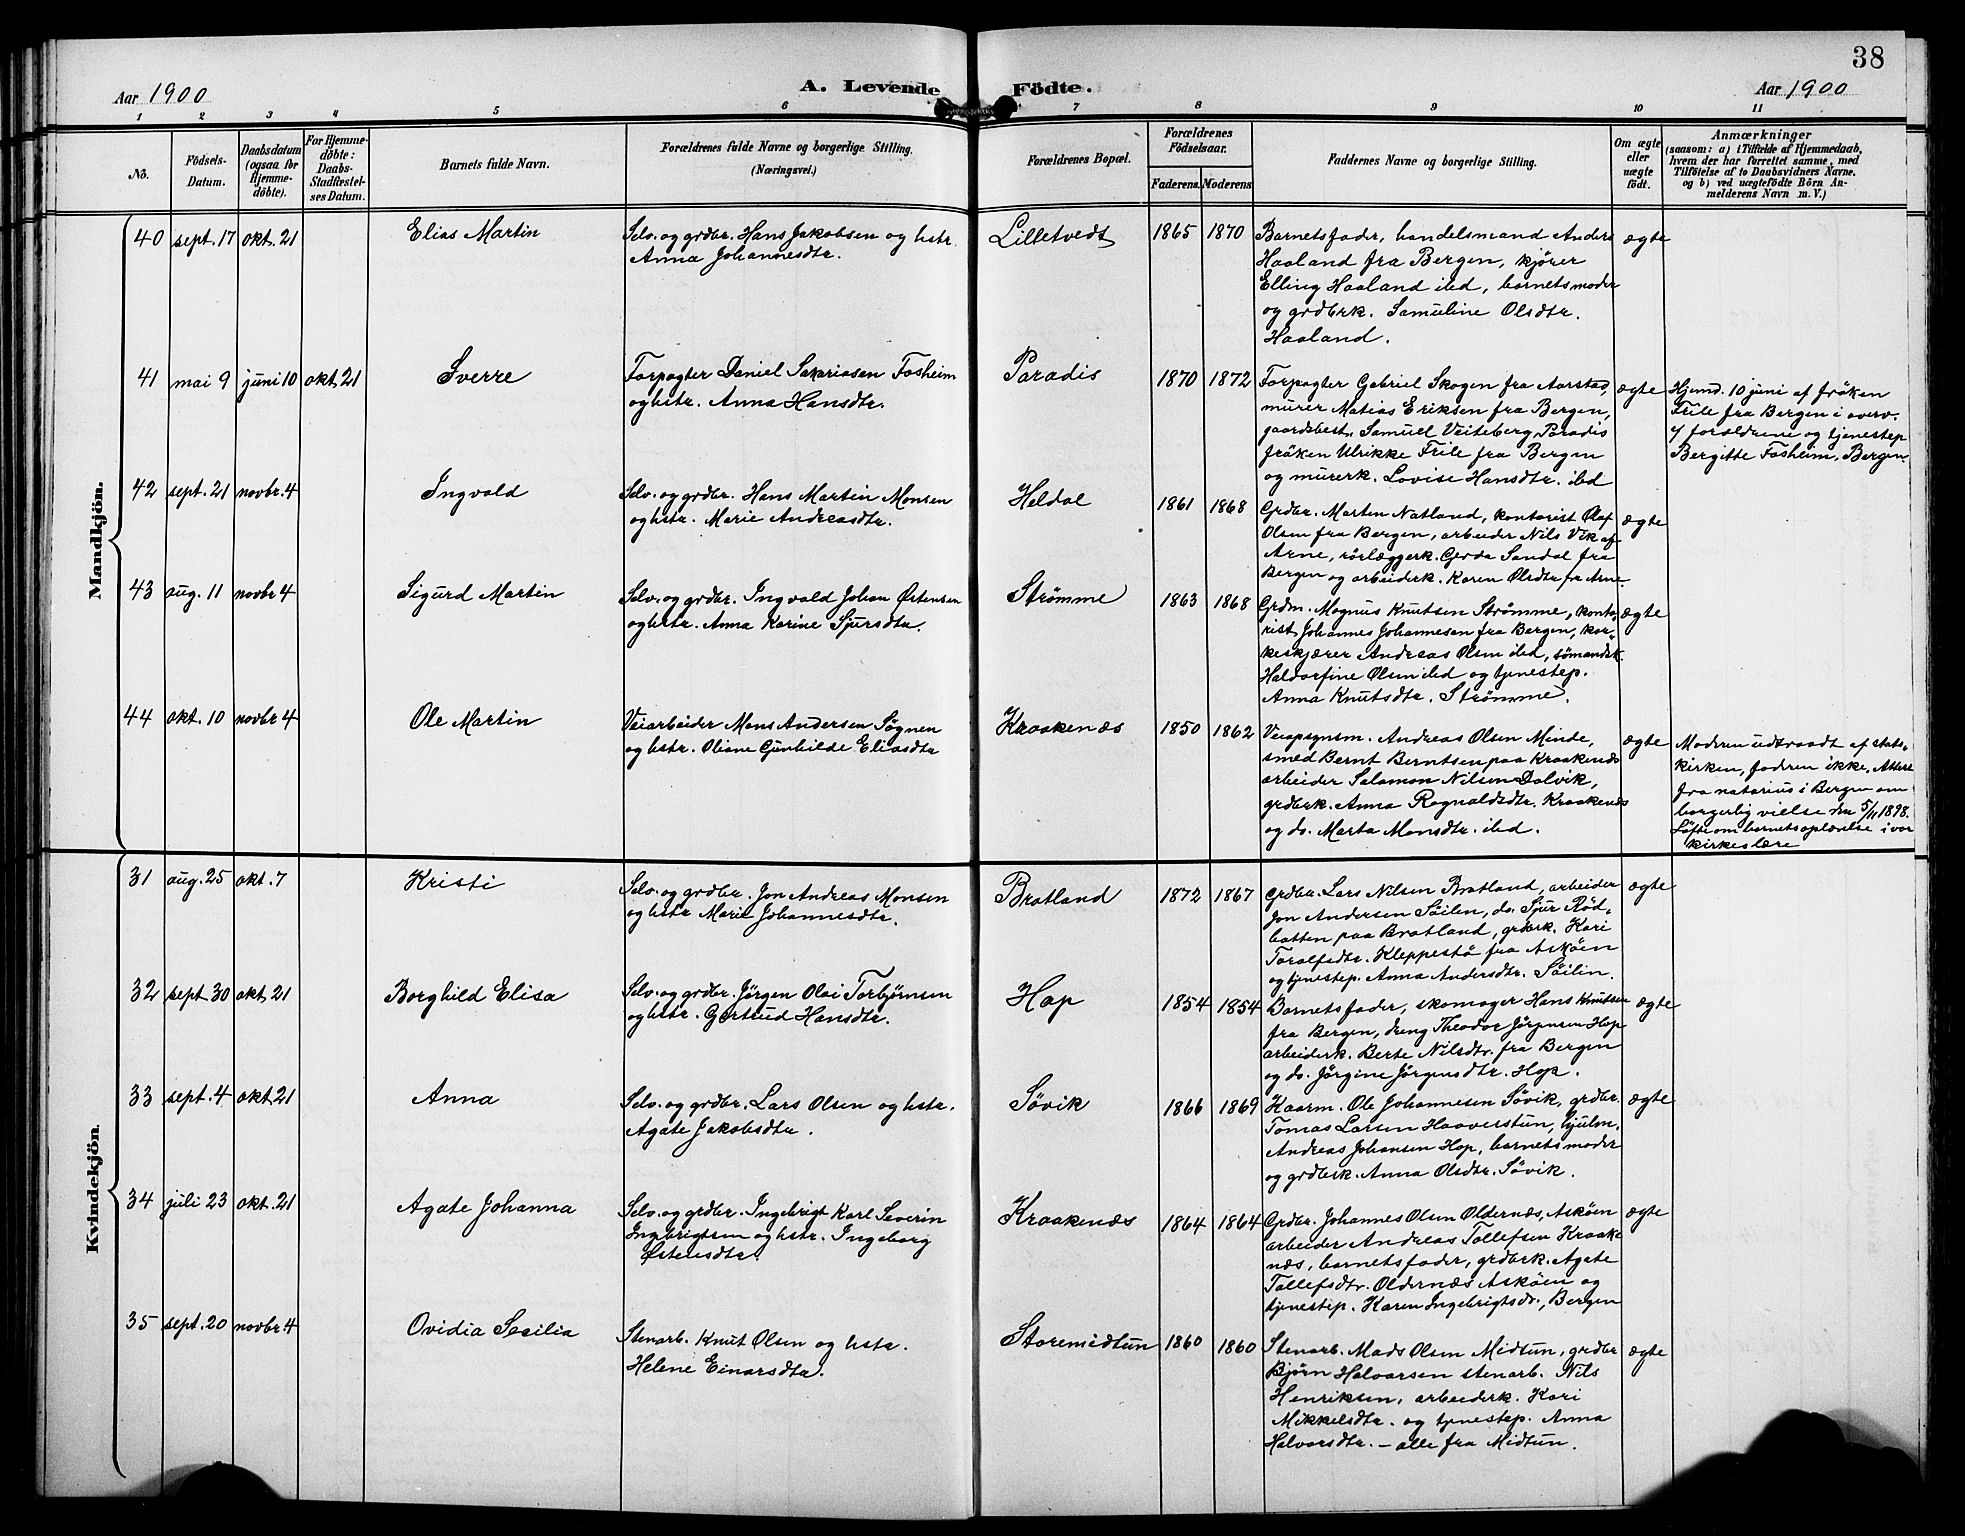 38
Aar 1900
A. Levende Födte.
Aar 1900
1 2 3 4 5 6 7 8 9 10 11
No.
Födsels-Datum.
Daabsdatum (ogsaa for Hjemme-döbte).
For Hjemme-döbte: Daabs-Stadfæstel-ses Datum.
Barnets fulde Navn.
Forældrenes fulde Navne og borgerlige Stilling.
(Næringsvei.)
Forældrenes Bopæl.
Forældrenes Födselsaar.
Faderens. Moderens
Faddernes Navne og borgerlige Stilling.
Om ægte eller uægte födt.
Anmærkninger
(saasom: a) i Tilfælde af Hjemmedaab,
hvem der har forrettet samme, med
Tilföielse af to Daabsvidners Navne.
og b) ved uægtefödte Börn An-
melderens Navn m. V.)
Mandkjön.
40 sept. 17 okt. 21 Elias Martin
Selv. og grdbr. Hans Jakobsen og hstr.
Anna Johannesdtr.
Lilletvedt 1865 1870
Barnets fader, handelsmand Anders
Haaland fra Bergen, kjörer
Elling Haaland ibd, barnets moder
og grdbrk. Samuline Olsdtr.
Haaland.
ægte
41 mai 9 juni 10 okt. 21 Sverre
Forpagter Daniel Sakariasen Fosheim
og hstr. Anna Hansdtr.
Paradis 1870 1872
Forpagter Gabriel Skogen fra Aarstad,
murer Matias Eriksen fra Bergen,
gaardsbest. Samuel Veiteberg Paradis
fröken Ulrikke Friele fra Bergen
og murerk. Lovise Hansdtr. ibd
ægte
Hjemd. 10 juni af fröken
Friele fra Bergen i overv.
af forældrene og tjenestep
Bergitte Fosheim, Bergen.
42 sept. 21 novbr. 4 Ingvald
Selv. og grdbr. Hans Martin Monsen
og hstr. Marie Andreasdtr.
Heldal 1861 1868
Grdbr. Martin Natland, kontorist Olaf
Olsen fra Bergen, arbeider Nils Vik af
Arne, rörlæggerk. Gerda Sandal fra
Bergen og arbeiderk. Karen Olsdtr fr Arne
ægte
43 aug. 11 novbr 4 Sigurd Martin
Selv. og grdbr. Ingvald Johan Østensen
og hstr. Anna Karine Sjursdtr.
Strømme 1863 1868
Grdm. Magnus Knutsen Strømme, konto-
rist Johannes Johannesen fra Bergen, kor-
keskjærer Andreas Olsen ibd, sømandsk.
Haldorfine Olsen ibd og tjenestep.
Anna Knutsdtr. Strømme.
ægte
44 okt. 10 novbr 4 Ole Martin
Veiarbeider Mons Andersen Søgnen
og hstr. Oliane Gunhilde Eliasdtr
Kraakenæs 1850 1862
Veiopsynsm. Andreas Olsen Minde,
smed Bernt Berntsen paa Kraakenæs
arbeider Salamon Nilsen Dalvik,
grdbrk. Anna Rognaldsdtr. Kraakenæs
og do. Marta Monsdtr. ibd.
ægte
Moderen udtraadt af stats-
kirken, fadren ikke. Attest
fra notarius i Bergen om
borgerlig vielse den 5/11 1898.
Løfte om barnets oplærelse i vor
kirkes lære
Kvindekjön.
31 aug. 25 okt. 7 Kristi
Selv. og grdbr. Jon Andreas Monsen
og hstr Marie Johannesdtr.
Bratland 1872 1867
Grdbr. Lars Nilsen Bratland, arbeider
Jon Andersen Söilen, do. Sjur Rød-
batten paa Bratland, grdbrk. Kari
Toralfsdtr. Kleppestø fra Askøen
og tjenestep. Anna Andersdtr. Söilin.
ægte
32 sept. 30 okt. 21 Borghild Elisa
Selv. og grdbr. Jörgen Olai Torbjørnsen
og hstr. Gertrud Hansdtr.
Hop 1854 1854
Barnets fader, skomager Hans Knutsen
fra Bergen, dreng Theodor Jörgensen Hop
arbeiderk. Berte Nilsdtr. fra Bergen
og do. Jörgine Jörgensdtr. Hop.
ægte
33 sept. 4 okt. 21 Anna
Selv. og grdbr. Lars Olsen og hstr.
Agate Jakobsdtr.
Søvik 1866 1869
Kaarm. Ole Johannesen Søvik, grdbr.
Tomas Larsen Haaverstun, hjulm.
Andreas Johansen Hop, barnets moder
og grdbrk. Anna Olsdtr. Søvik.
ægte
34 juli 23 okt. 21 Agate Johanna
Selv. og grdbr. Ingebrigt Karl Severin
Ingebrigtsen og hstr. Ingeborg
Østensdtr.
Kraakenæs 1864 1864
Grdbr. Johannes Olsen Oldernæs, Askøen
arbeider Andreas Tollefsen Kraake
næs, barnets fader, grdbrk. Agate
Tollefsdtr. Oldernæs Askøen og
tjenestep. Karen Ingebrigtsdr., Bergen
ægte
35 sept. 20 novbr. 4 Ovidia Secilia
Stenarb. Knut Olsen og hstr.
Helene Einarsdtr.
Storemidtun 1860 1860
Stenarb. Mads Olsen Midtun, grdbr
Bjørn Halvorsen stenarb. Nils
Henriksen, arbeiderk. Kari
Mikkelsdtr. og tjenestep. Anna
Halvorsdtr. – alle fra Midtun.
ægte